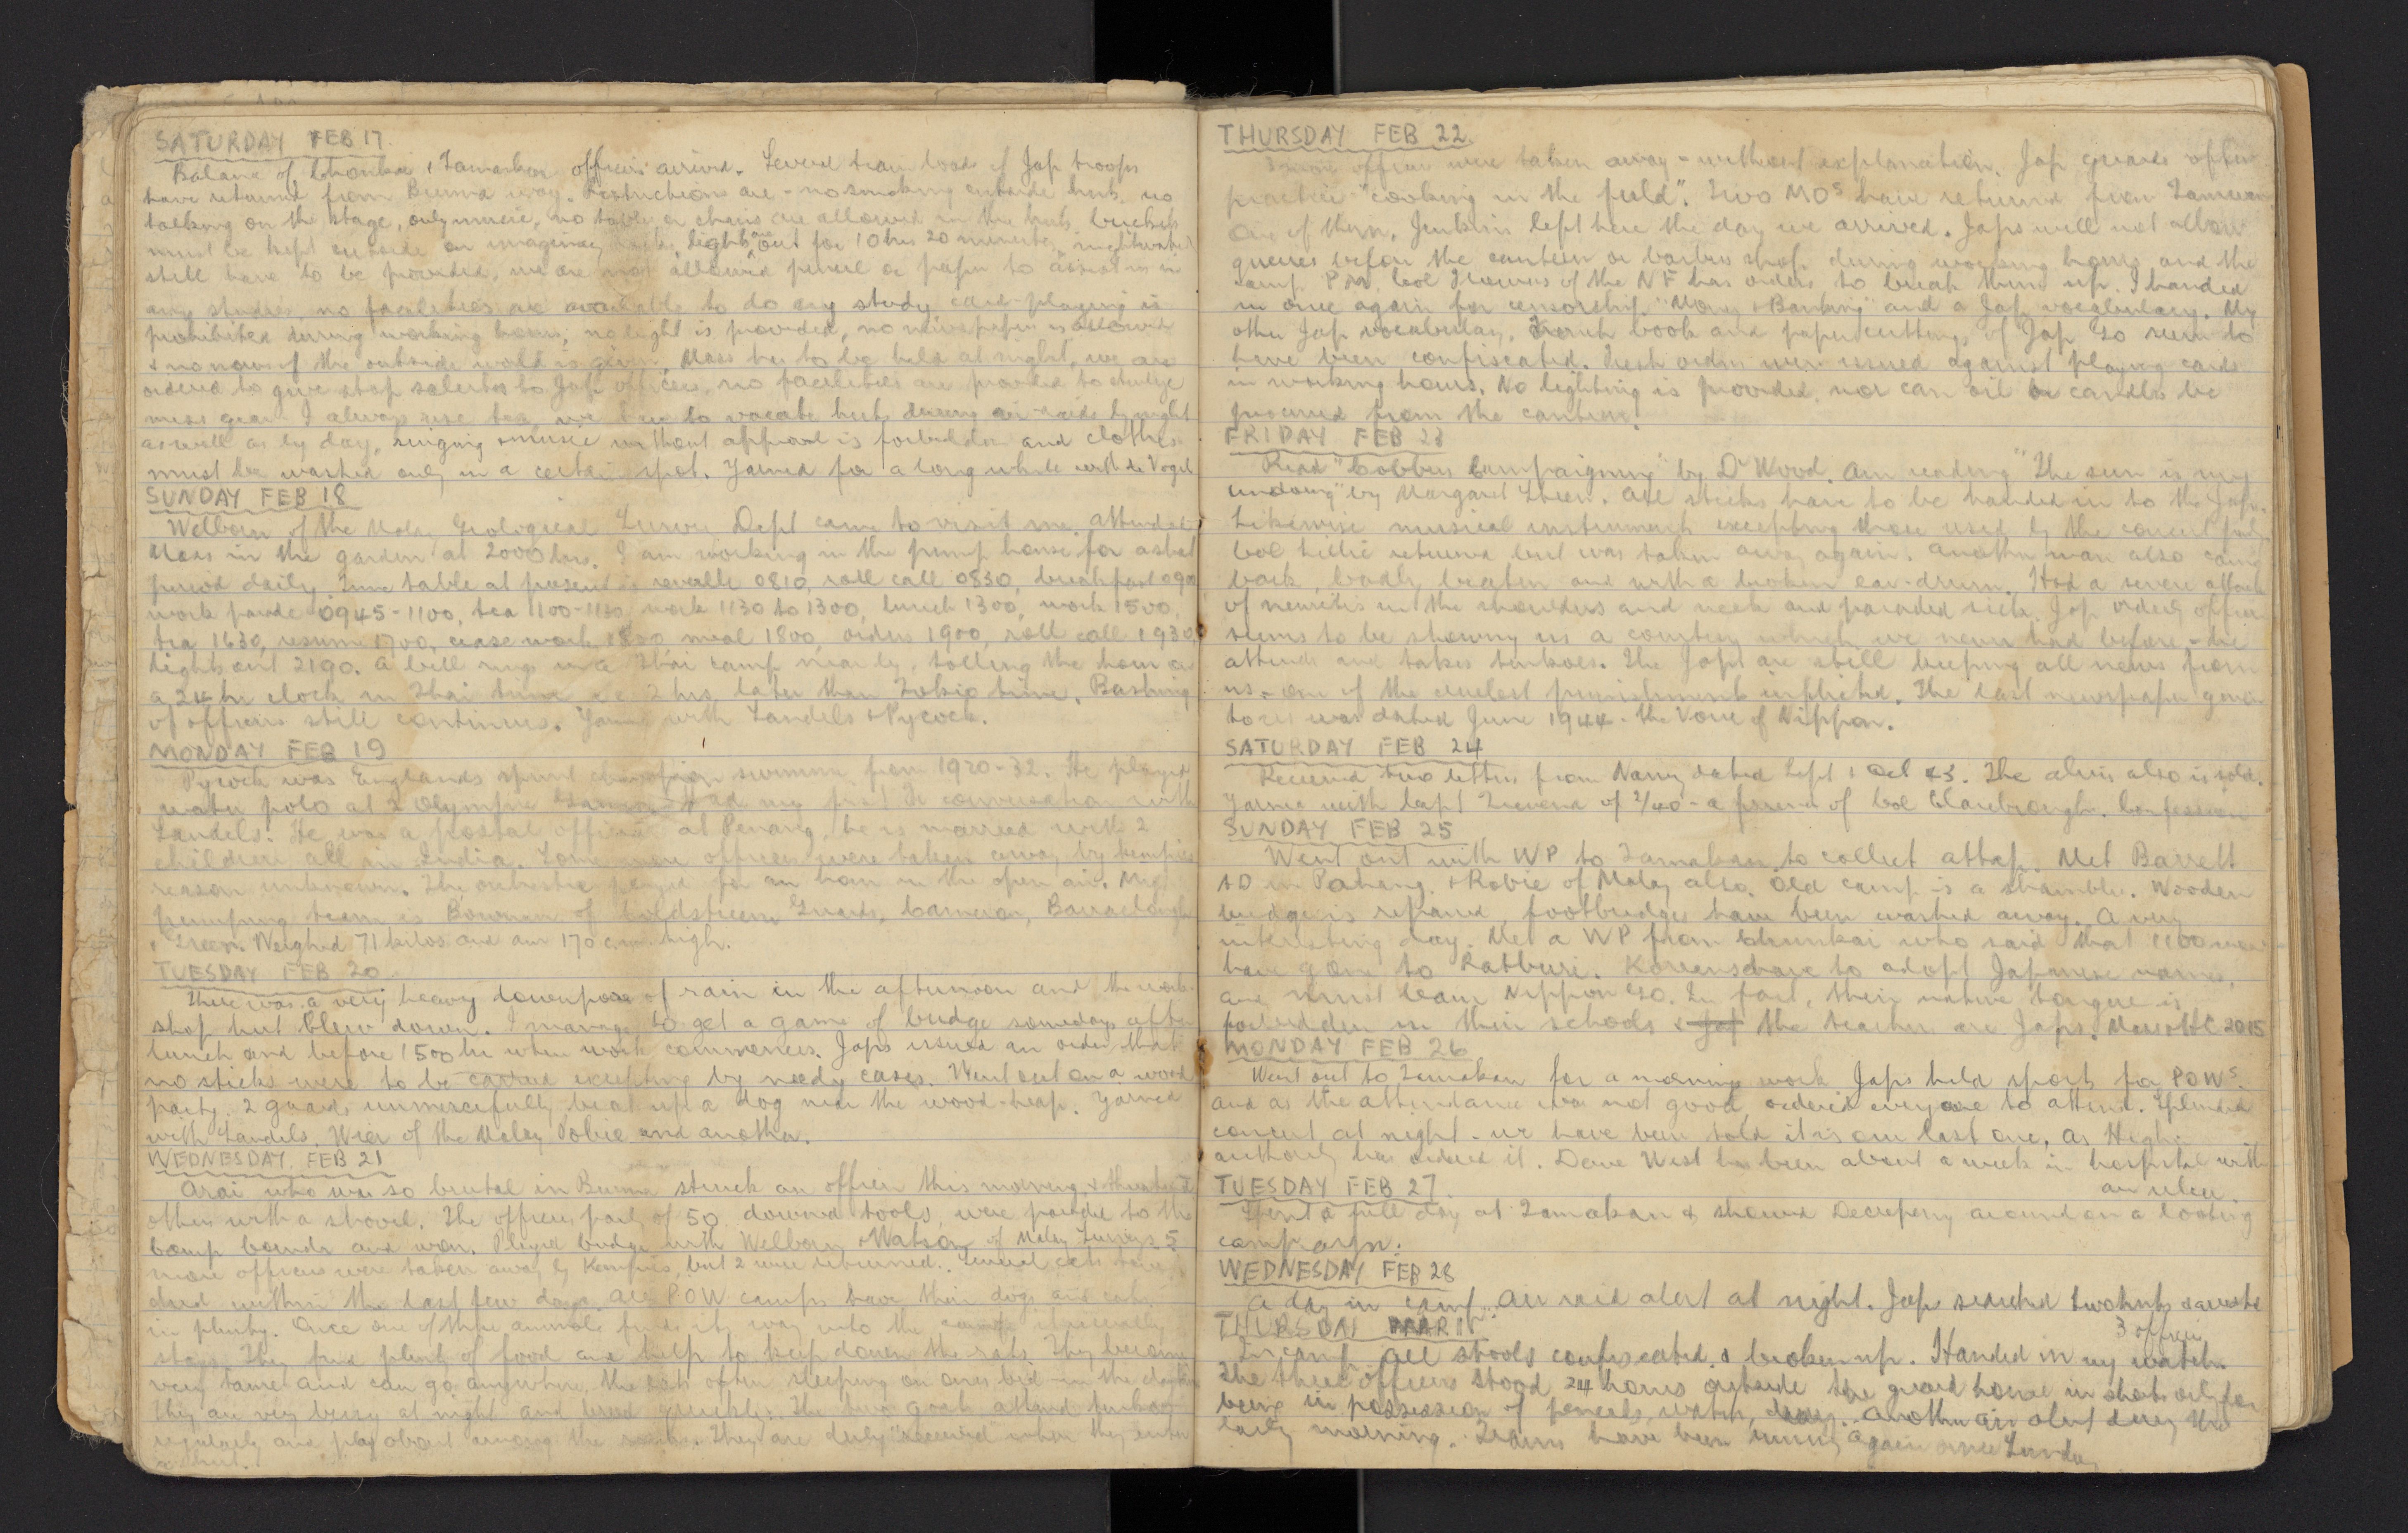 SATURDAY FEB 17.
Balance of Chonkai & Tamarkan officers arrived. Several train loads of Jap troops
have returned from Burma way. Restrictions are - no smoking outside huts, no
talking on the stage, only music, no tables or chairs are allowed in the huts, buckets
must be kept outside an imaginary lights are out for 10 hrs 20 minutes,
still have to be provided, we are not allowed pencil or paper to assist us in
any studies, no facilities are available to do any study, card-playing is
prohibited during working hours, no light is provided, no newspaper is allowed
& no news of the outside world is given, Mass has to be held at night, we are
ordered to give stop salutes to Jap officers, no facilities are provided to
mess gear I always use tea, we have to vacate huts during air-raids by night
as well as by day, singing & music without approval is forbidden and clothes
must be washed only in a certain spot. Yarned for a long while with de Vogel
SUNDAY FEB 18
Welbourn of the Malay Geological Survey Dept came to visit me. Attended
Mass in the garden at 2000 hrs. I am working in the pump house for a short
period daily. Time table at present is reveille 0810, roll call 0830, breakfast 0900
work parade 0945-1100, tea 1100-1130, work 1130 to 1300, lunch 1300, work 1500,
tea 1630, resume 1700, cease work 1830, meal 1800, orders 1900, roll call 1930,
lights out 2190. A bell rings in a Thai camp nearby, tolling the hour on
a 24 hr clock in Thai time i.e. 2 hrs later than Tokio time. Bashing
of officers still continues. Yarned with Landels & Pycock.
MONDAY FEB 19
Pycock was Englands sprint champion swimmer from 1920-32. He played
water polo at 2 Olympic Games. Had my first conversation with
Landels. He was a postal officer at Penang, he is married with 2
children all in India. Some more officers were taken away by kempies
reason unknown. The orchestra played for an hour in the open air. My
pumping team is Bowman of Coldstream Guards, Cameron, Barraclough
& Green. Weighed 71 kilos and am 170 c.m. high.
TUESDAY FEB 20.
There was a very heavy downpour of rain in the afternoon and the work-
shop hut blew down. I manage to get a game of bridge somedays after
lunch and before 1500 hr when work commences. Japs issued an order that
no sticks were to be carried excepting by needy cases. Went out on a wood
party. 2 guards unmercifully beat up a dog near the wood-heap. Yarned
with Landels, Wier of the Malay Police and another.
WEDNESDAY FEB 21
Arai who was so brutal in Burma struck an officer this morning & threatened
others with a shovel. The officers party of 50 downed tools, were paraded to the
camp bounds and won. Played bridge with Welbourn & Watson of Malay Surveys. 5
more officers were taken away by Kempies, but 2 were returned. Several cats have
died within the last few days. All POW camps have their dogs and cats
in plenty. Once one of these animals finds its way into the camp it usually
stays. They find plenty of food and help to keep down the rats. They become
very tame and can go anywhere, the cats often sleeping on ones bed in the daytime
they are very busy at night and breed quickly. The two goats attend tenkos
regularly and play about among the ranks. They are duly "received" when they enter
a hut.
THURSDAY FEB 22.
3 more officers were taken away - without explanation. Jap guards often
practice "cooking in the field". Two MOs have returned from Tamuan
One of them, Jenkins left here the day we arrived. Japs will not allow
queues before the canteen or barbers shop during working hours and the
camp Col Flowers of the NF has orders to break them up. I handed
in once again for censorship "Money & Banking" and a Jap vocabulary. My
other Jap vocabulary, French book and paper cuttings of Jap Go seem to
have been confiscated. Fresh orders were issued against playing cards
in working hours. No lighting is provided, nor can oil or candles be
procured from the canteen.
FRIDAY FEB 23
Read "Cobbers Campaigning" by Dr Wood. Am reading "The sun is my
undoing" by Margaret Steen. All sticks have to be handed in to the Japs.
Likewise musical instruments excepting those used by the concert party.
Col Lillie returned but was taken away again. Another man also came
back, badly beaten and with a broken ear-drum. Had a severe attack
of neuritis in the shoulders and neck and paraded sick. Jap orderly officer
seems to be showing us a courtesy which we never had before - he
attends and takes tenkoes. The Japs are still keeping all news from
us - one of the cruelest punishments inflicted. The last newspaper given
to us was dated June 1944 - the Voice of Nippon.
SATURDAY FEB 24
Received two letters from Nancy dated Sept & Oct 43. The alvis also is sold.
Yarned with Capt of 2/40 - a friend of Col Clarebrough. Confession
SUNDAY FEB 25
Went out with WP to Tamakan, to collect attap. Met Barrett
AD in Pahang. & Robie of Malay also. Old camp is a shambles. Wooden
bridge is repaired, footbridges have been washed away. A very
interesting day. Met a WP from Chunkai who said that 1100 men
have gone to Ratburi. Koreans have to adopt Japanese names,
and must learn Nippon Go. In fact, their native tongue is
forbidden in their schools & Jap the teachers are Japs. Mass & HC 2015
MONDAY FEB 26
Went out to Tamakan for a mornings work. Japs held sports for POWs.
and as the attendance was not good, ordered everyone to attend. Splendid
concert at night - we have been told it is our last one, as Higher
authority has ordered it. Dave West has been about a week in hospital with
an ulcer.
TUESDAY FEB 27.
Spent a full day at Tamakan & showed around on a looting
campaign.
WEDNESDAY FEB 28
A day in camp. Air raid alert at night. Japs searched two huts & arrested
3 officers
THURSDAY MAR 1
In camp. All stools confiscated & broken up. Handed in my watch.
The three officers stood 24 hours outside the guard house in shorts only for
being in possession of pencils, watch, diary. Another air alert during the
early morning. Trains have been running again since Sunday